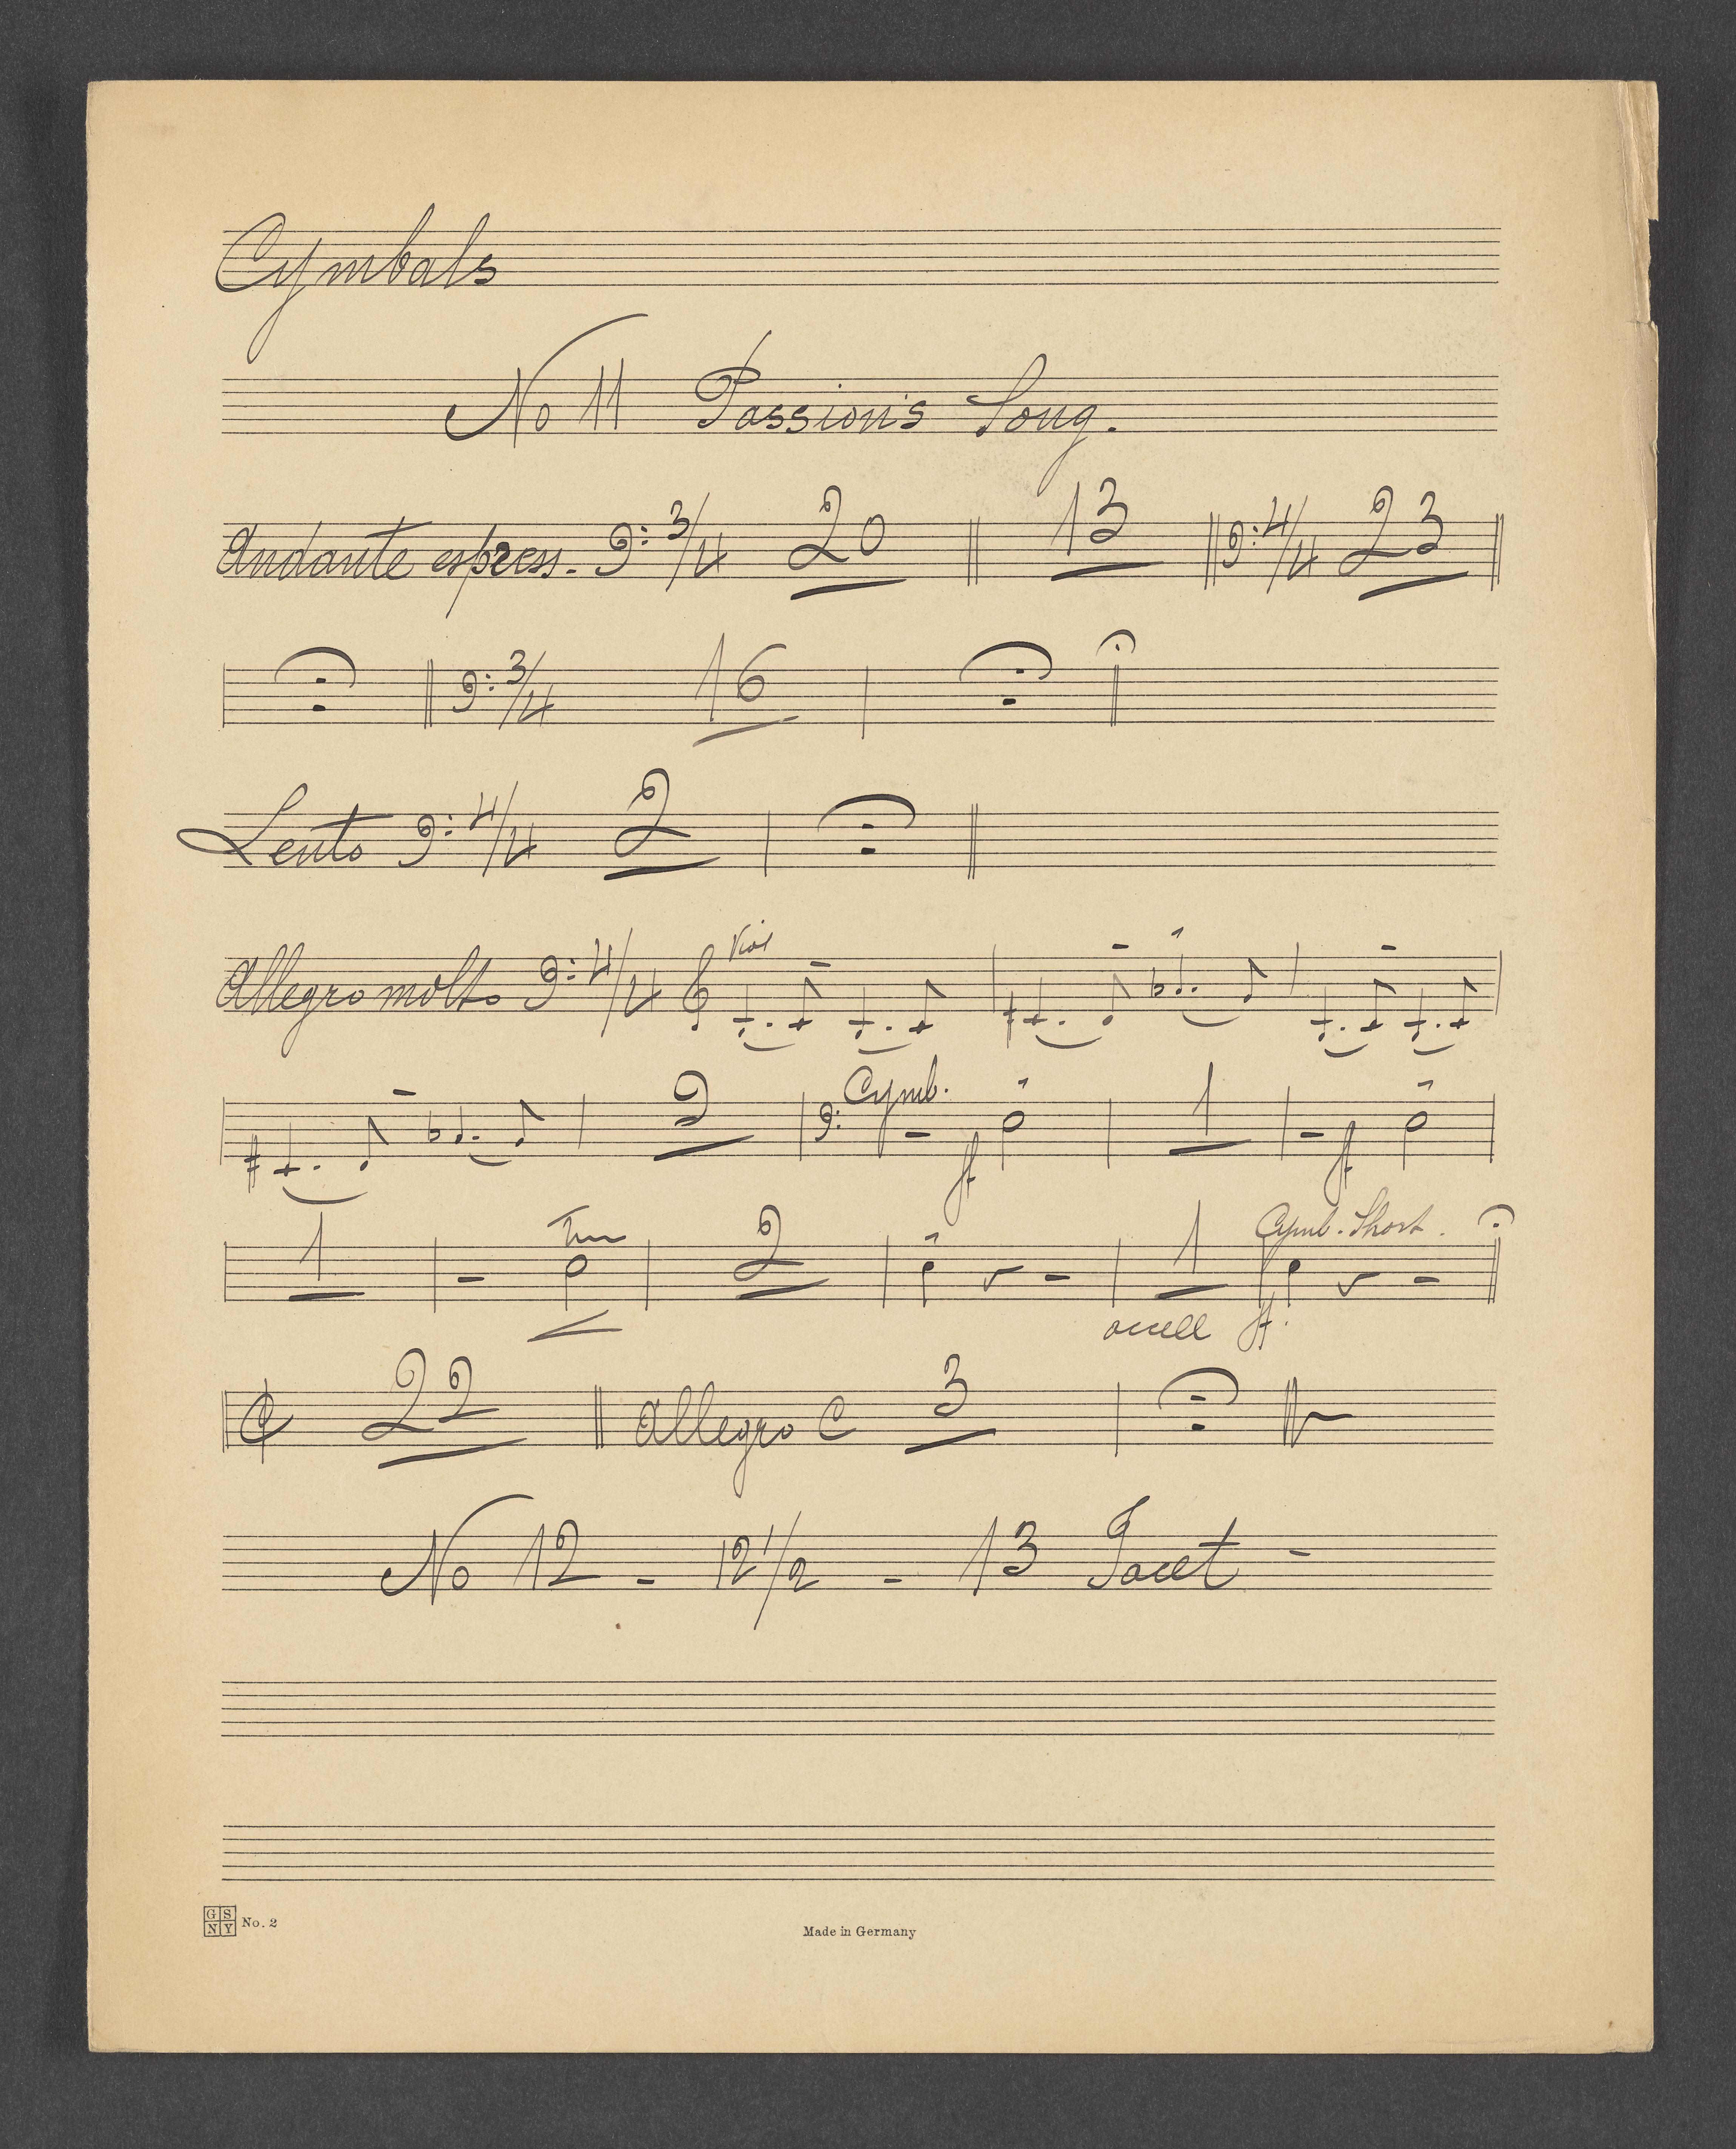 Cymbals
No 11 Passion's Song.
Andante espress. 3/4 20 13 4/4 23
3/4 16
Lento 4/4 2
Allegro molto 4/4 Viol
2 Cymb. ff 1 ff
1 2 1 Cymb. Short.
accell ff.
22 Allegro C 3
No 12 - 12 1/2 - 13 Tacet -
GS
NY No. 2
Made in Germany